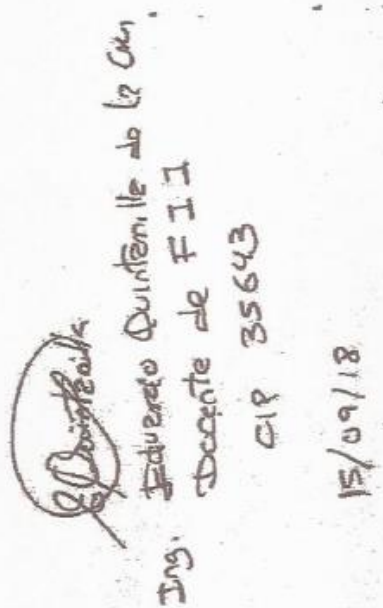 EQuintanilla
Ing. Eduardo Quintanilla de la Cruz
Docente de FII
CIP 35643
15/09/18